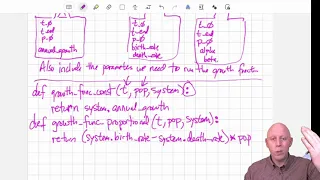 t_0 t_0 t_0
t_end t_end t_end
p_0 p_0 p_0
annual_growth birth_rate alpha
death_rate beta
Also include the parameters we need to run the growth funct
def growth_func_const(t, pop, system):
return system.annual_growth
def growth_func_proportional(t, pop, system):
return (system.birth_rate - system.death_rate) * pop